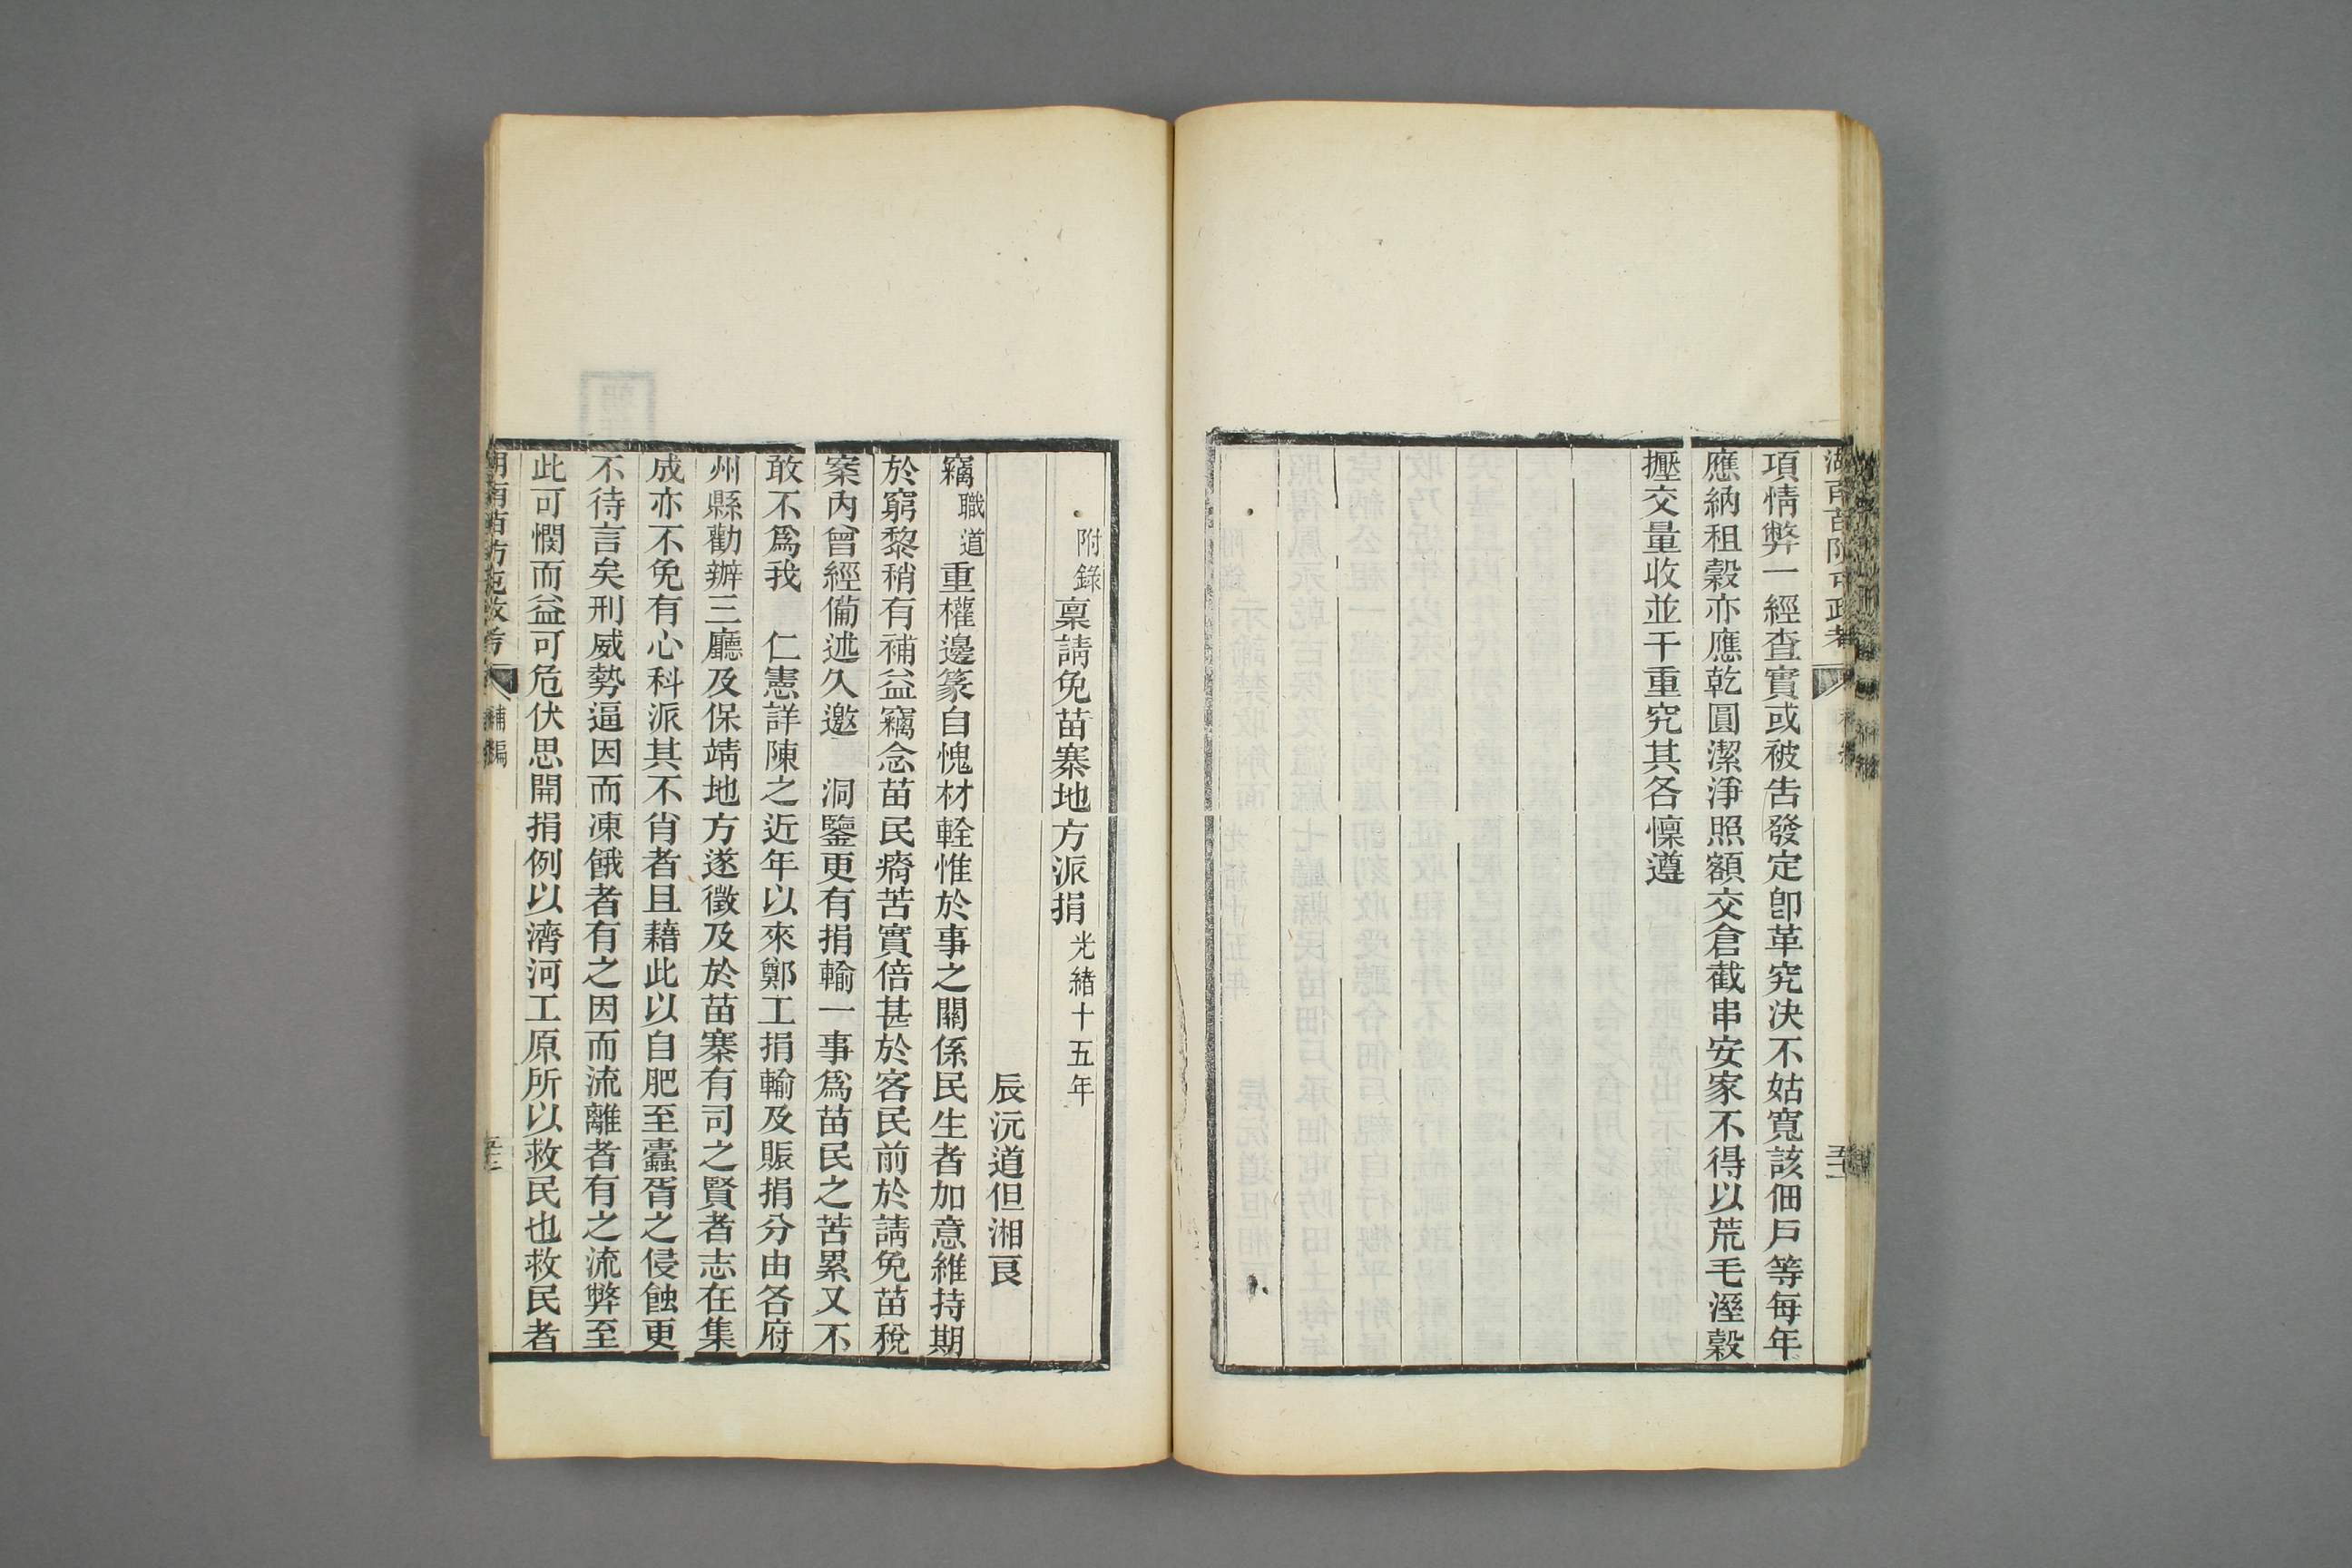 湖南苗防屯政考
項情弊一經查實或被告發定卽革究決不姑寬該佃戶等每年
應納租穀亦應乾圓潔淨照額交倉截串安家不得以荒毛溼穀
擫交量收並干重究其各懍遵
附錄稟請免苗寨地方派捐光緒十五年
辰沅道但湘良
竊職道重權邊篆自愧材輇惟於事之關係民生者加意維持期
於窮黎稍有補益竊念苗民瘠苦實倍甚於客民前於請免苗稅
案內曾經備述久邀　洞鑒更有捐輸一事爲苗民之苦累又不
敢不爲我　仁憲詳陳之近年以來鄭工捐輸及賑捐分由各府
州縣勸辦三廳及保靖地方遂徵及於苗寨有司之賢者志在集
成亦不免有心科派其不肖者且藉此以自肥至蠹胥之侵蝕更
不待言矣刑威勢逼因而凍餓者有之因而流離者有之流弊至
此可憫而益可危伏思開捐例以濟河工原所以救民也救民者
湖南苗防屯政考
補編